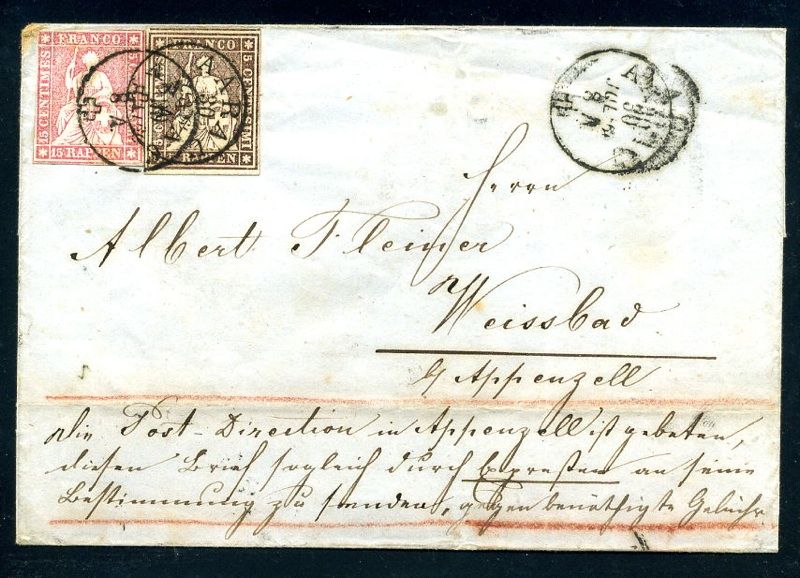 FRANCO
15 CENTIMES
15 RAPPEN
FRANCO
5
RAPPEN
AARAU
AARAU
30
JUL
8
Herrn
Albert Fleiner
Weissbad
b/ Appenzell
Die Post-Direction in Appenzell ist gebeten,
diesen Brief sogleich durch Expreßen an seine
Bestimmung zu senden, gegen benöthigte Gebühr.